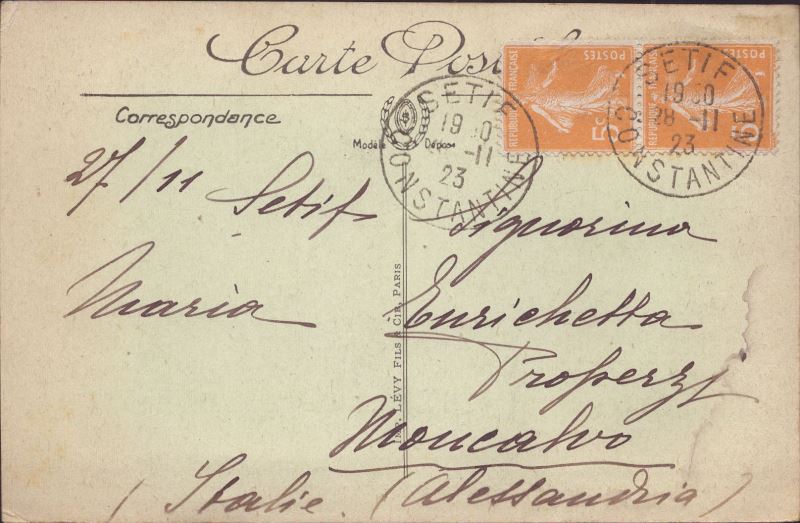 Carte Postale
Correspondance
Modèle Déposé
SETIF
19 30
28 -11
23
CONSTANTINE
SETIF
19 30
28 -11
23
CONSTANTINE
REPUBLIQUE FRANÇAISE
POSTES
5c
REPUBLIQUE
POSTES
5c
27/11 Setif
Maria
Signorina
Enrichetta
Properzi
Moncalvo
(Alessandria)
(Italie.
IMP. LÉVY FILS & CIE, PARIS